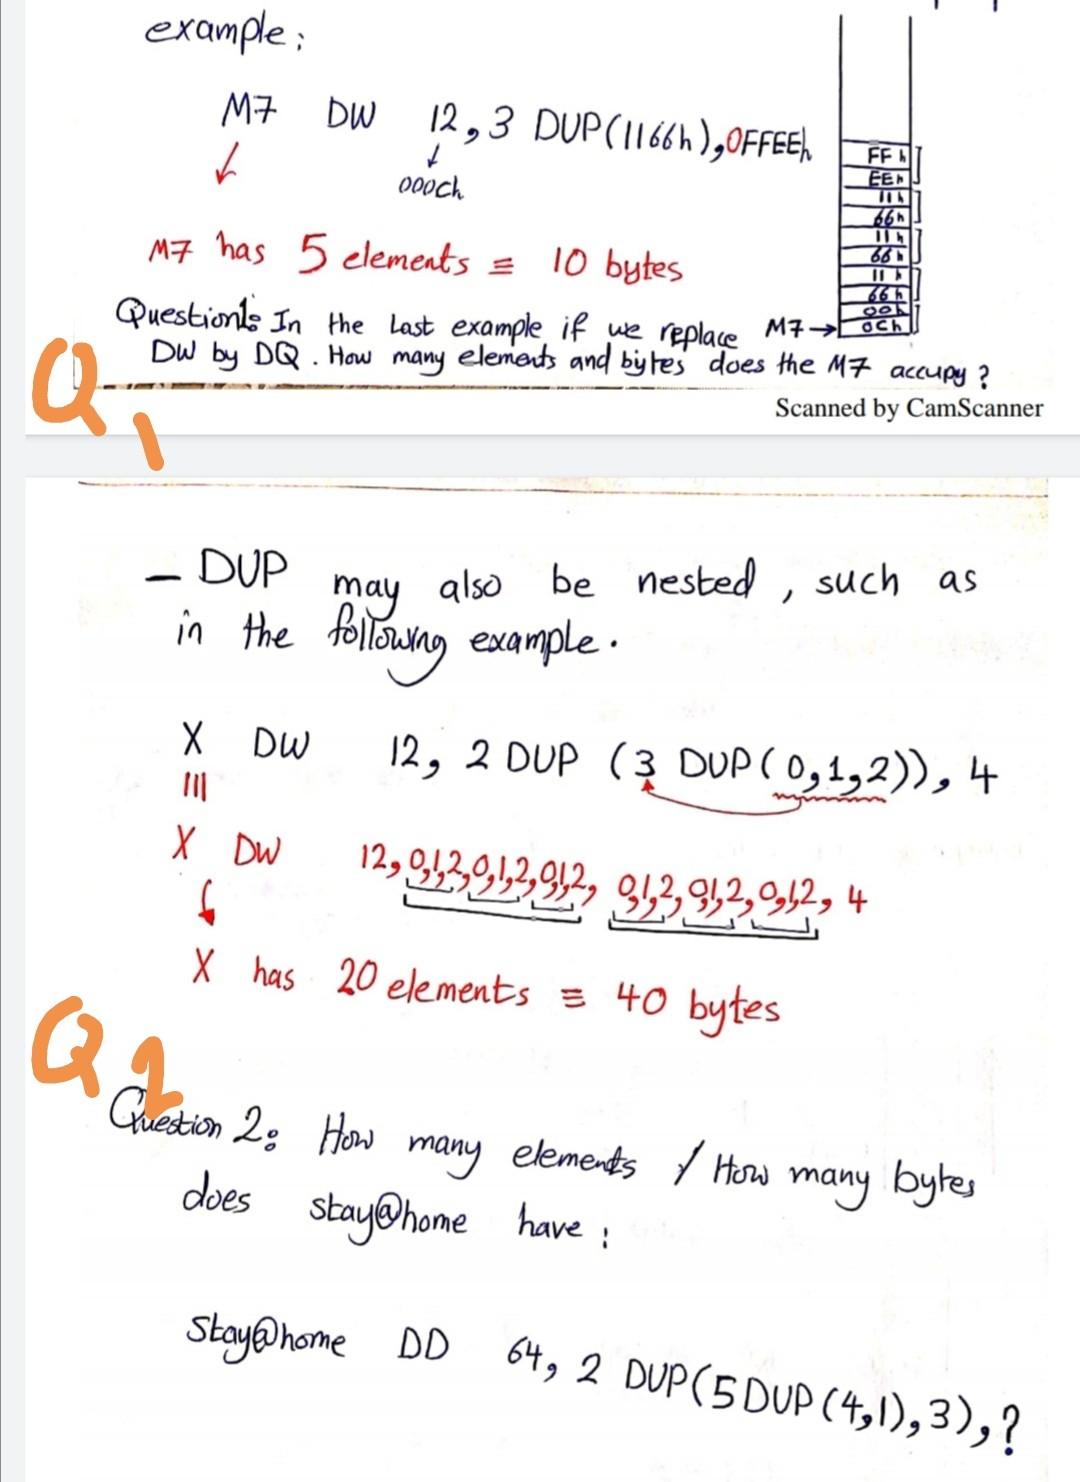 example:
M7 DW 12,3 DUP(1166h),0FFEEh
000ch
FFh
EEh
11h
66h
11h
66h
11h
66h
00h
M7→ 0Ch
M7 has 5 elements ≡ 10 bytes
Question1: In the last example if we replace
DW by DQ. How many elements and bytes does the M7 accupy?
Q1
Scanned by CamScanner
- DUP may also be nested, such as
in the following example.
X DW 12, 2 DUP (3 DUP(0,1,2)), 4
X DW 12,0,1,2,0,1,2,0,1,2, 0,1,2,0,1,2,0,1,2, 4
X has 20 elements ≡ 40 bytes
Q2
Question 2: How many elements / How many bytes
does stay@home have:
Stay@home DD 64, 2 DUP(5DUP(4,1),3),?